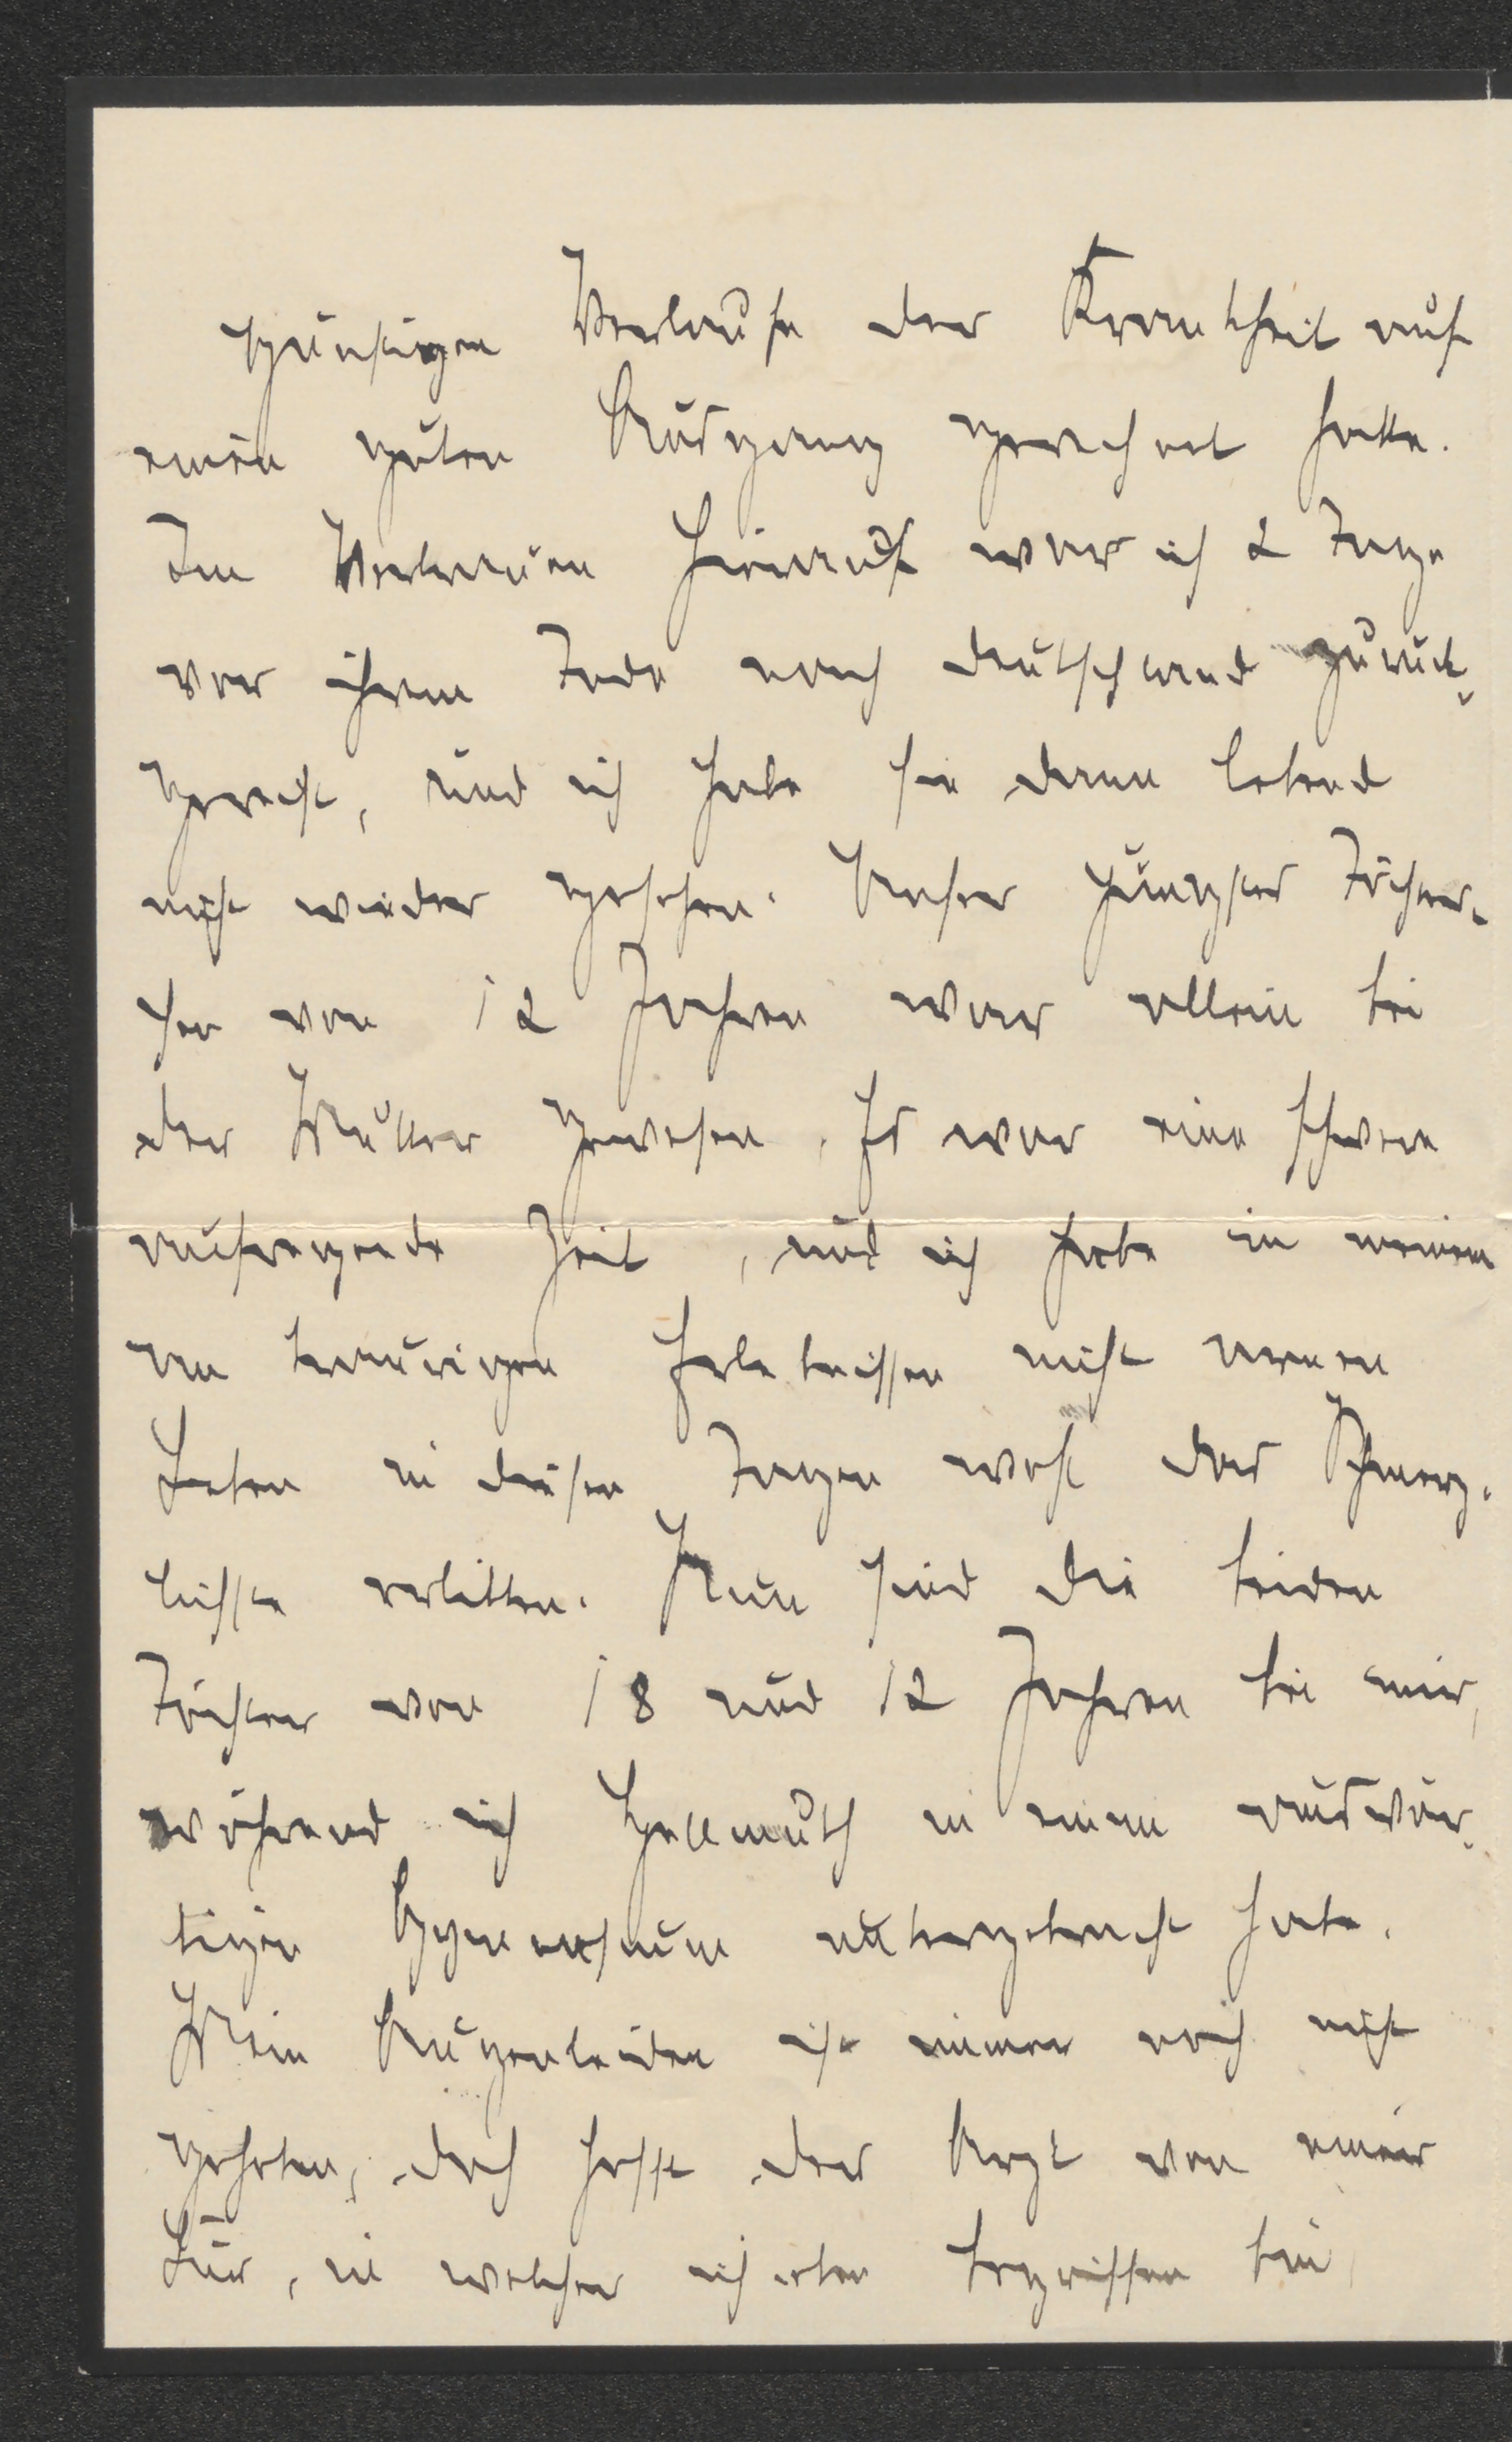 günstigen Verlaufe der Krankheit auf
einen guten Ausgang gerechnet hatte.
Im Vertrauen hierauf war ich 2 Tage
vor ihrem Tode nach Deutschland zurück-
gereist, und ich habe sie dann lebend
nicht wieder gesehen. Unser jüngstes Töchter-
chen von 12 Jahren war allein bei
der Mutter gewesen. Es war eine schwere
aufregende Zeit, und ich habe in meinem
an traurigen Erlebnissen nicht armen
Leben in diesen Tagen wohl das Schmerz-
lichste erlitten. Nun sind die beiden
Töchter von 18 und 12 Jahren bei mir,
während ich Hellmuth in einem auswär-
tigen Gymnasium untergebracht habe.
Mein Augenleiden ist immer noch nicht
gehoben, doch hofft der Arzt von einer
Kur, in welcher ich eben begriffen bin,